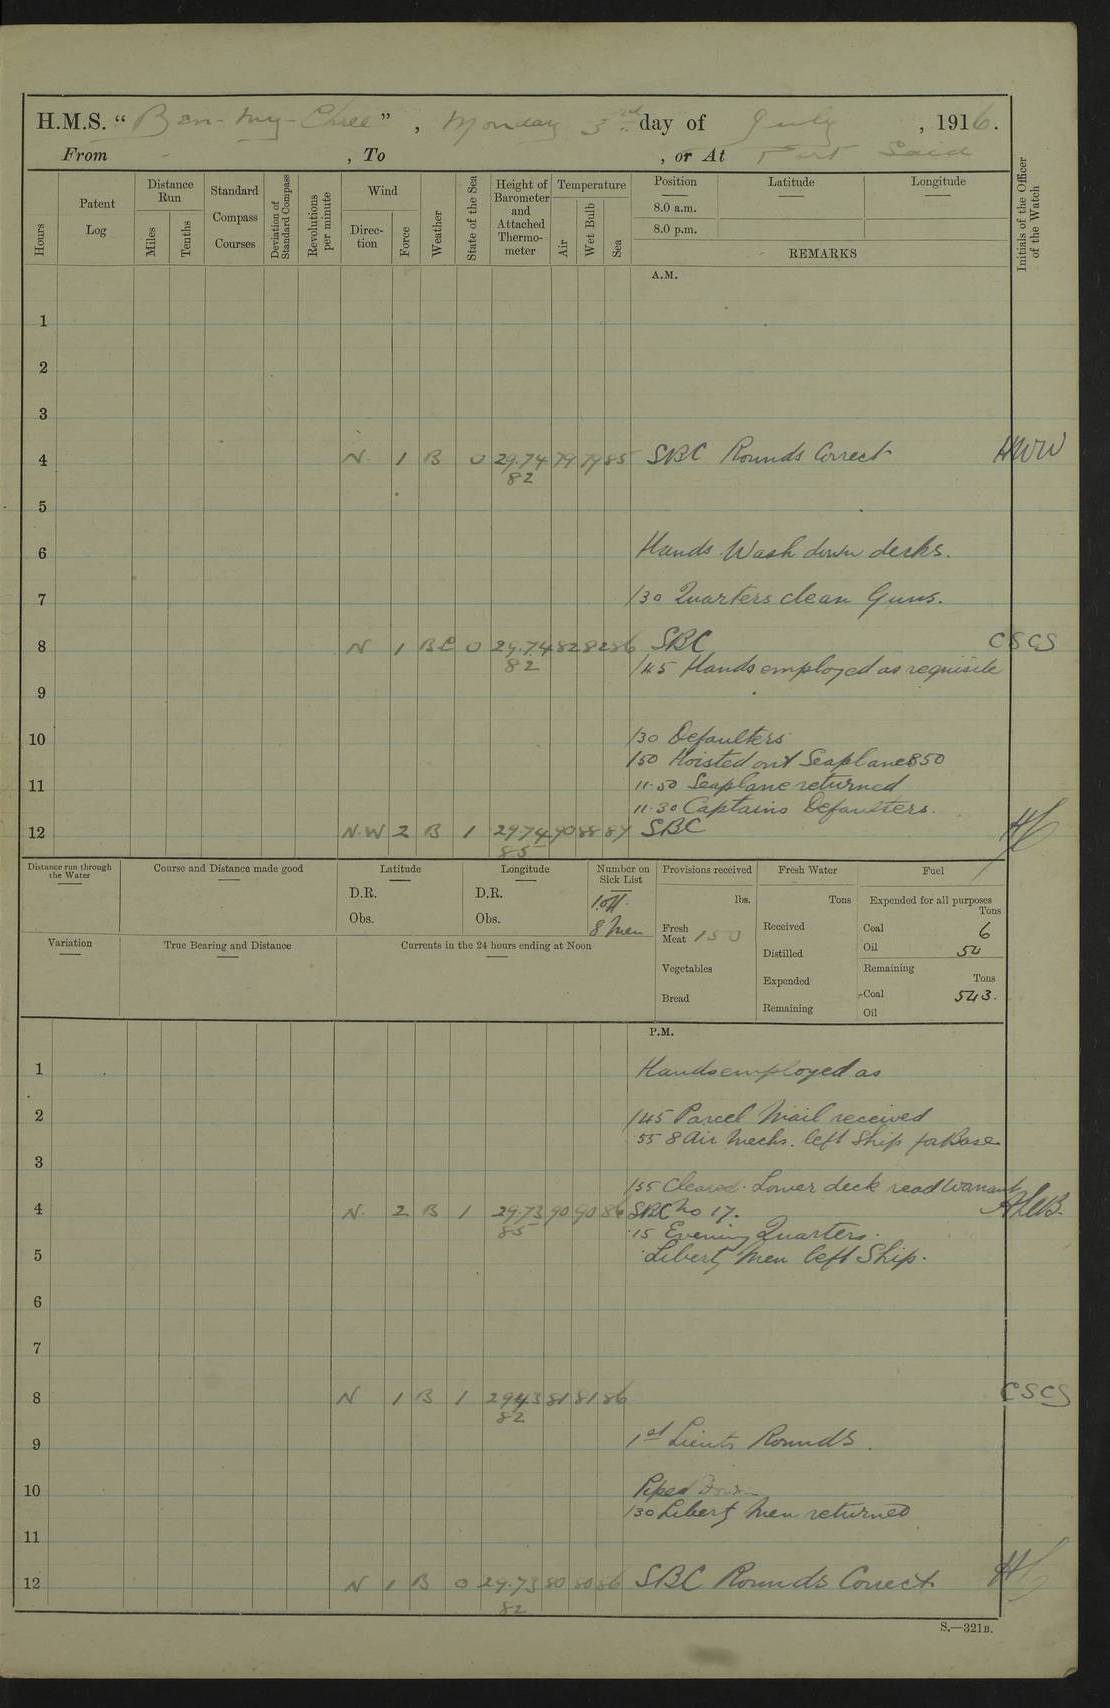 H.M.S. “Ben-my-Chree” , Monday 3rd day of July , 1916.
From - , To , or At Port Said
Hours
Patent Log
Distance Run
Miles
Tenths
Standard Compass Courses
Deviation of Standard Compass
Revolutions per minute
Wind
Direction
Force
Weather
State of the Sea
Height of Barometer and Attached Thermometer
Temperature
Air
Wet Bulb
Sea
Position
8.0 a.m.
8.0 p.m.
Latitude
Longitude
REMARKS
Initials of the Officer of the Watch
A.M.
1
2
3
4 N. 1 B 0 29.74 79 79 85 SBC Rounds Correct HWW
82
5
6 Hands Wash down decks.
7 /30 Quarters clean Guns.
8 N 1 BC 0 29.74 82 82 86 SBC CSCS
82 /45 Hands employed as requisite
9
10 /30 Defaulters
/50 Hoisted out Seaplane 850
11 11.50 Seaplane returned
11.30 Captains Defaulters.
12 N.W 2 B 1 29.74 90 88 87 SBC
85
Distance run through the Water
Course and Distance made good
Latitude
D.R.
Obs.
Longitude
D.R.
Obs.
Number on Sick List
1 Off.
8 Men
Provisions received
lbs.
Fresh Meat 150
Vegetables
Bread
Fresh Water
Tons
Received
Distilled
Expended
Remaining
Fuel
Expended for all purposes
Tons
Coal 6
Oil 50
Remaining
Tons
Coal 543.
Oil
Variation
True Bearing and Distance
Currents in the 24 hours ending at Noon
P.M.
1 Hands employed as
2 /45 Parcel Mail received
55 8 Air Mechs. left Ship for Base
3
/55 Cleared Lower deck read Warrant
4 N. 2 B 1 29.73 90 90 86 SBC No 17.
85 .15 Evening Quarters.
5 Liberty Men left Ship.
6
7
8 N 1 B 1 29.73 81 81 86 CSCS
82
9 1st Lieuts Rounds.
10 Piped Down
/30 Liberty Men returned
11
12 N 1 B 0 29.73 80 80 86 SBC Rounds Correct
82
S.—321B.